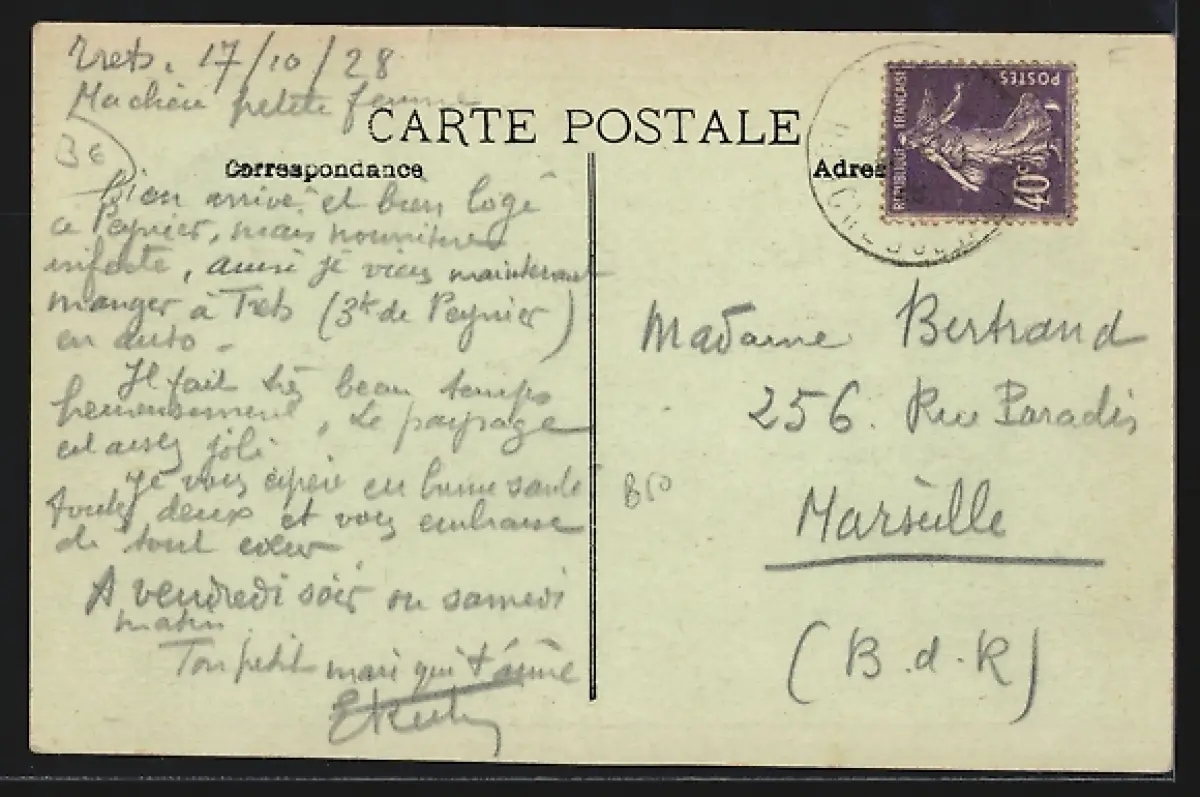 Trets. 17/10/28
Ma chère petite femme
CARTE POSTALE
B6
Correspondance
Adres
Bien arrivé et bien logé
à Peynier, mais nourriture
infecte, aussi je viens maintenant
manger à Trets (3k de Peynier)
en auto.
Il fait très beau temps
heureusement, Le paysage
est assez joli
Je vous espère en bonne santé
toutes deux et vous embrasse
de tout cœur
A vendredi soir ou samedi
matin
Ton petit mari qui t'aime
REPUBLIQUE FRANÇAISE
POSTES
40c
Madame Bertrand
256. Rue Paradis
B50
Marseille
(B.d.R)